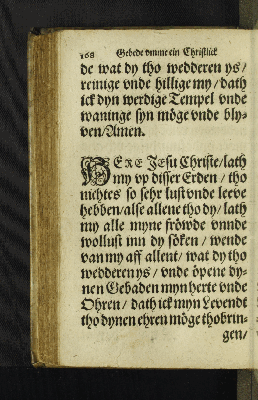 168 Gebede vmme ein Christlick
de wat dy tho wedderen ys/
reinige vnde hillige my/ dath
ick dyn werdige Tempel vnde
waninge syn möge vnde bly-
ven/ Amen.
HERE Jesu Christe/ lath
my vp disser Erden/ tho
nichtes so sehr lust vnde leeve
hebben/ alse allene tho dy/ lath
my alle myne fröwde vnnde
wollust inn dy söken/ wende
van my aff allent/ wat dy tho
wedderen ys/ vnde öpene dy-
nen Gebaden myn herte vnde
Ohren/ dath ick myn Levendt
tho dynen ehren möge thobrin-
gen/